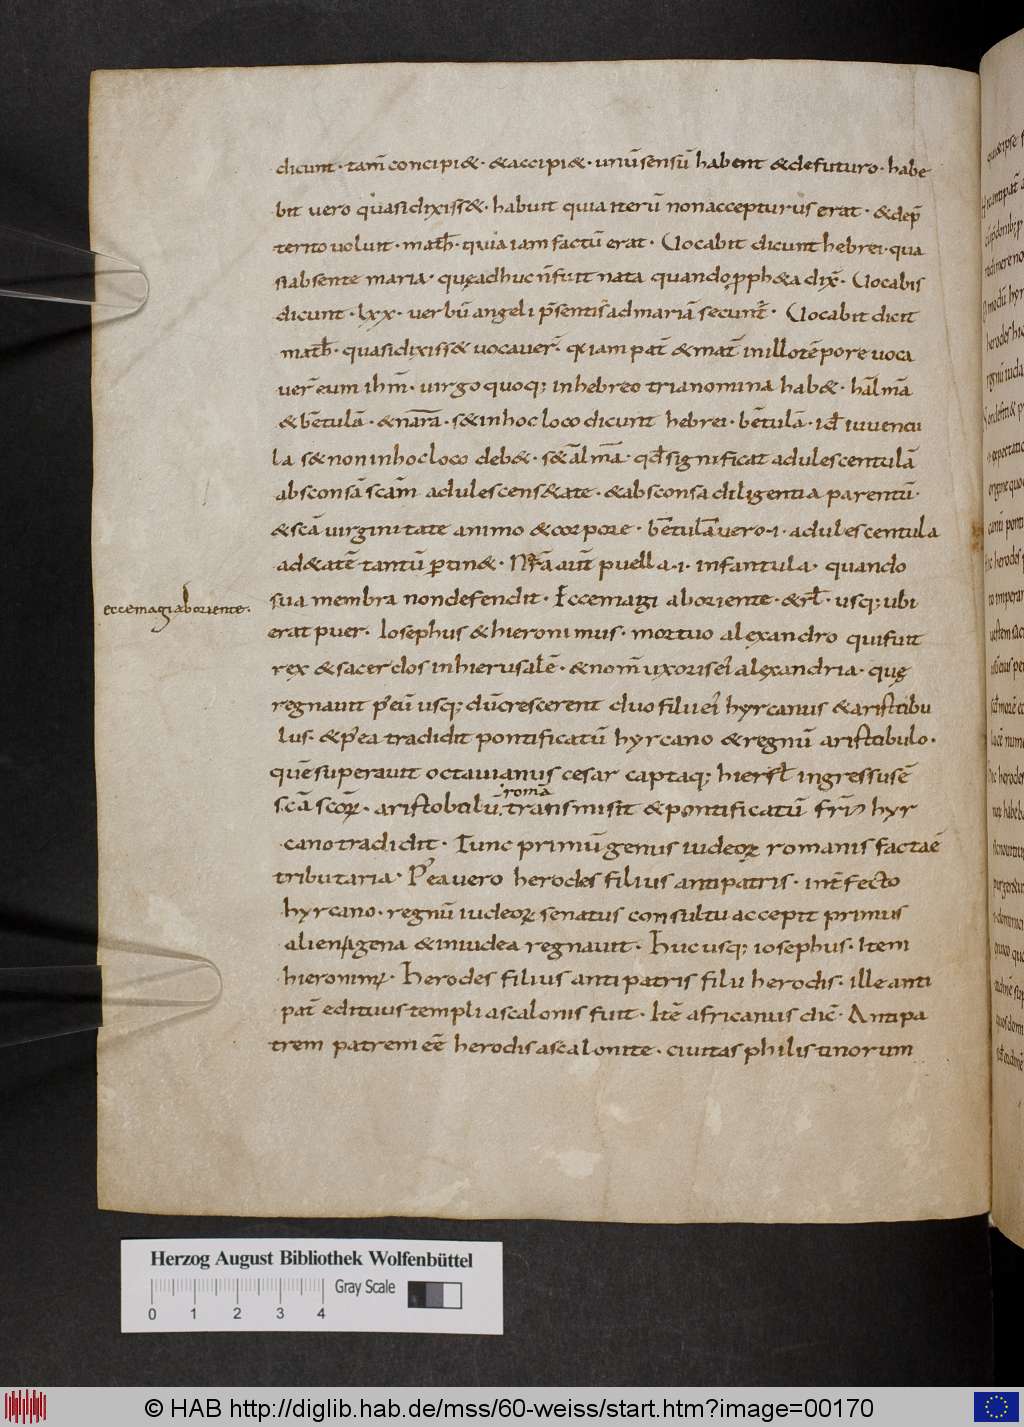 dicunt · tam̄ concipi& · & accipi& · unū sensū habent & de futuro · habe
bit vero quasi dixiss& · habuit quia iterū non accepturus erat · & dep̄
terito voluit · math̄ · quia iam factū erat · Uocabit dicunt hebrei · qua
si absente maria · quę adhuc n̄ fuit nata quando pph&a dix̄ · Uocabis
dicunt · lxx · verbū angeli p̄sentis ad mariā secunt̄ · Uocabit dicit
math̄ · quasi dixiss& vocaver̄ · iam pat̄ & mat̄ in illo tēpore voca
ver̄ eum ihm̄ · virgo quoq; in hebreo tria nomina hab& · hālmā
& bētulā · & nārā · s& in hoc loco dicunt hebrei · bētulā · id̄ iuvencu
la s& non in hoc loco deb& · s& ālmā · qd̄ significat adulescentulā
absconsā scām adulescens&ate · & absconsa diligentia parentū ·
& scā virginitate animo & corpore · bētulā vero ·i· adulescentula
ad &atē tantū ptin& · Nārā aut̄ puella ·i· infantula · quando
sua membra non defendit · Ecce magi ab oriente · & rl̄ · usq; ubi
ecce magi ab oriente ·
erat puer · Iosephus & hieronimus · mortuo alexandro qui fuit
rex & sacerdos in hierusalē · & nom̄ uxoris ei alexandria · quę
regnavit p eū usq; dū crescerent duo filii ei hyrcanus & aristibu
lus · & p ea tradidit pontificatū hyrcano & regnū aristibulo ·
quē superavit octavianus cesar captaq; hierl̄ ingressus ē
scā scōꝝ · aristobtilū · romā transmisit & pontificatū frī hyr
cano tradidit · Tunc primū genus iudeoꝝ romanis facta ē
tributaria · P ea vero herodes filius antipatris · int̄fecto
hyrcano · regnū iudeoꝝ senatus consultu accepit primus
alienigena & in iudea regnavit · Huc usq; iosephus · Item
hieronim · Herodes filius antipatris filii herodis · ille anti
pat̄ edituus templi ascalonis fuit · Itē africanus dic̄ · Antipa
trem patrem eē herodis ascalonite · civitas philistinorum
Herzog August Bibliothek Wolfenbüttel
Gray Scale
0 1 2 3 4
© HAB http://diglib.hab.de/mss/60-weiss/start.htm?image=00170